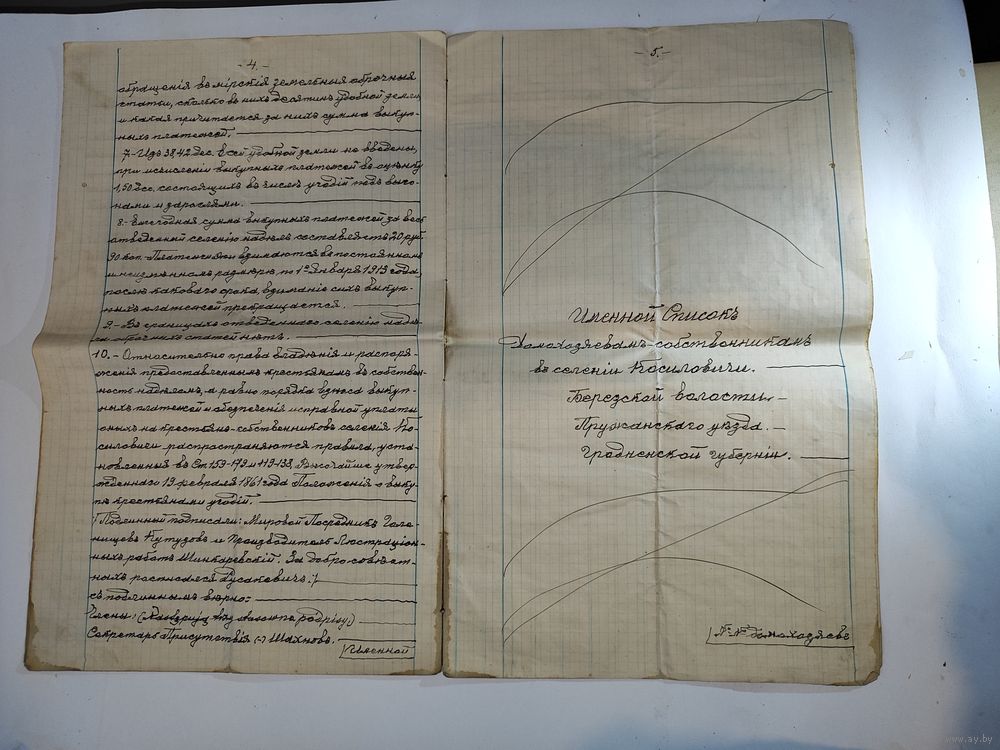 -4.-
обращенія въ мірскія земельныя оброчныя
статьи, сколько въ нихъ десятинъ удобной земли,
и какая причитается за нихъ сумма выкуп-
ныхъ платежей.
7.- Изъ 3842 дес. всей удобной земли не введены,
при исчисленіи выкупныхъ платежей въ оцѣнку
1,50 дес, состоящихъ въ числѣ угодій подъ выго-
нами и зарослями.
8.- Ежегодная сумма выкупныхъ платежей за весь
отведенный селенію надѣлъ составляетъ 20 руб.
90 коп. Платежи взимаются въ постоянномъ
и неизмѣнномъ размѣрѣ, по 1е Января 1913 года,
послѣ каковаго срока, взиманіе сихъ выкуп-
ныхъ платежей прекращается.
9.- Въ границахъ отведеннаго селенію надѣ-
ла оброчныхъ статей нѣтъ.
10.- Относительно права владѣнія и распоря-
женія предоставленнымъ крестьянамъ въ собствен-
ность надѣломъ, а равно порядка взноса выкуп-
ныхъ платежей и обезпеченія исправной уплаты
оныхъ на крестьянъ-собственниковъ селенія Ко-
силовичи распространяются правила, уста-
новленныя въ Ст. 159-179 и 119-138, Высочайше утвер-
жденнаго 19 февраля 1861 года Положенія о выку-
пѣ крестьянами угодій.
/Подлинный подписали: Мировой Посредникъ Голе-
нищевъ Кутузовъ и Производитель Люстраціон-
ныхъ работъ Шинкаревскій. За добросовѣст-
ныхъ росписался Русакевичъ./
съ подлиннымъ вѣрно:
Члены:
Секретарь Присутствія (-) Шахновъ.
Именной
-5.-
Именной Списокъ
Домохозяевамъ-собственникамъ
въ селеніи Косиловичи.
Березской волости,-
Пружанскаго уѣзда.-
Гродненской губерніи.
№№ домохозяевъ
www.ay.by